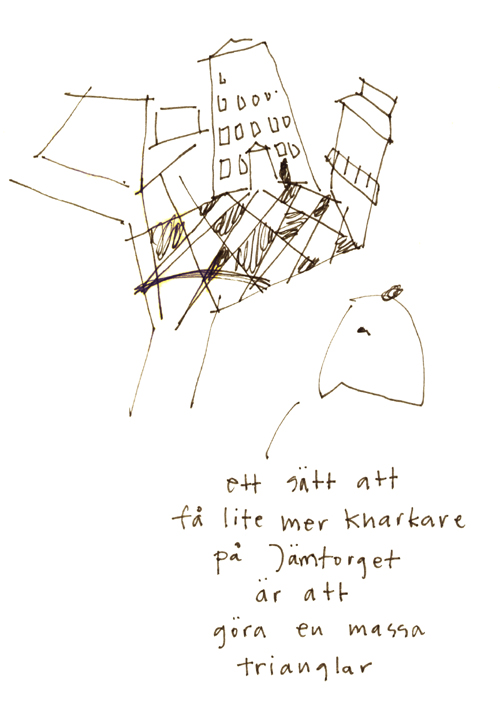 ett sätt att
få lite mer knarkare
på Järntorget
är att
göra en massa
trianglar